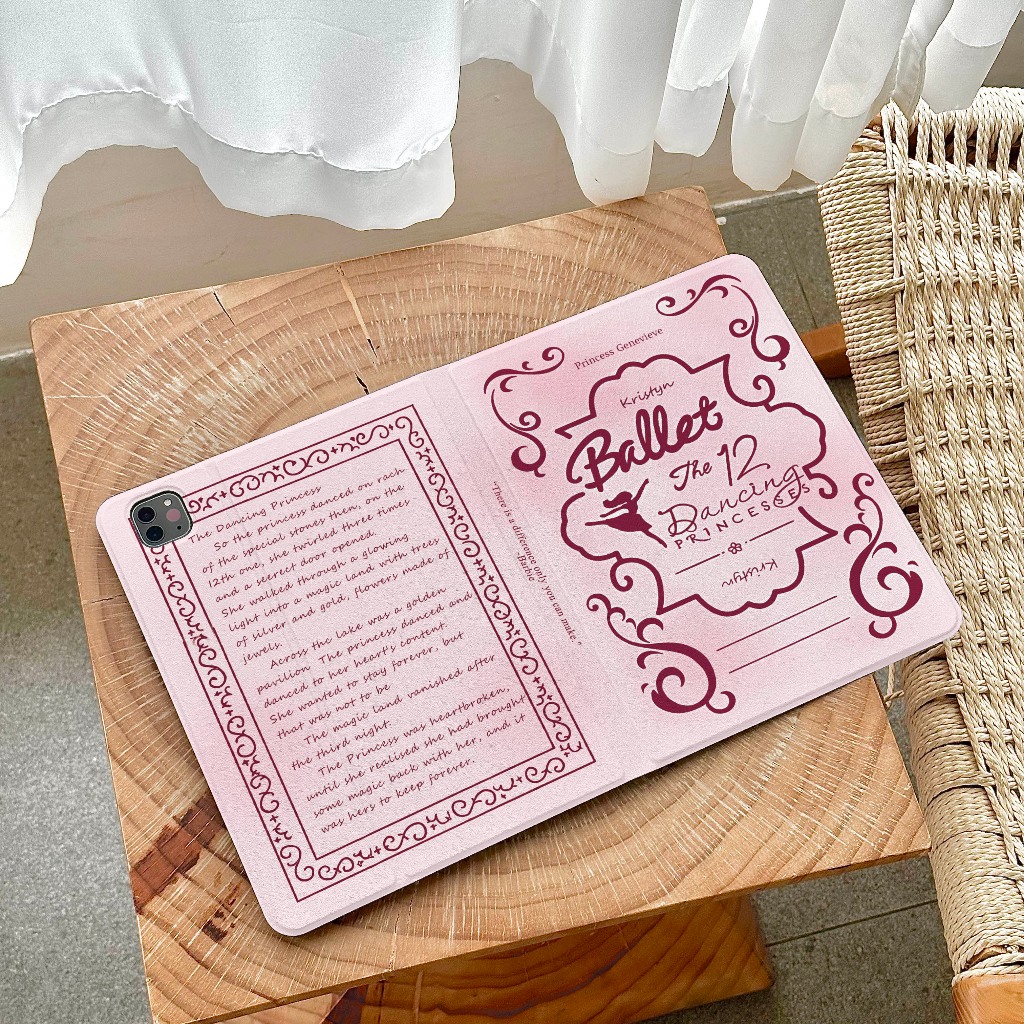 The Dancing Princess
So the princess danced on rach
of the special stones them, on the
12th one, she twirled three times
and a seerect door opened.
She walked through a glowing
light into a magic land with trees
of silver and gold, flowers made of
jewels.
Across the lake was a golden
pavilion. The princess danced and
danced to her heart's content.
She wanted to stay forever, but
that was not to be.
The magic land vanished after
the third night.
The Princess was heartbroken,
until she realised she had brought
some magic back with her, and it
was hers to keep forever.
"There is a difference only you can make."
-Barbie
Princess Genevieve
Kristyn
Ballet
The 12
Dancing
PRINCESSES
Kristyn